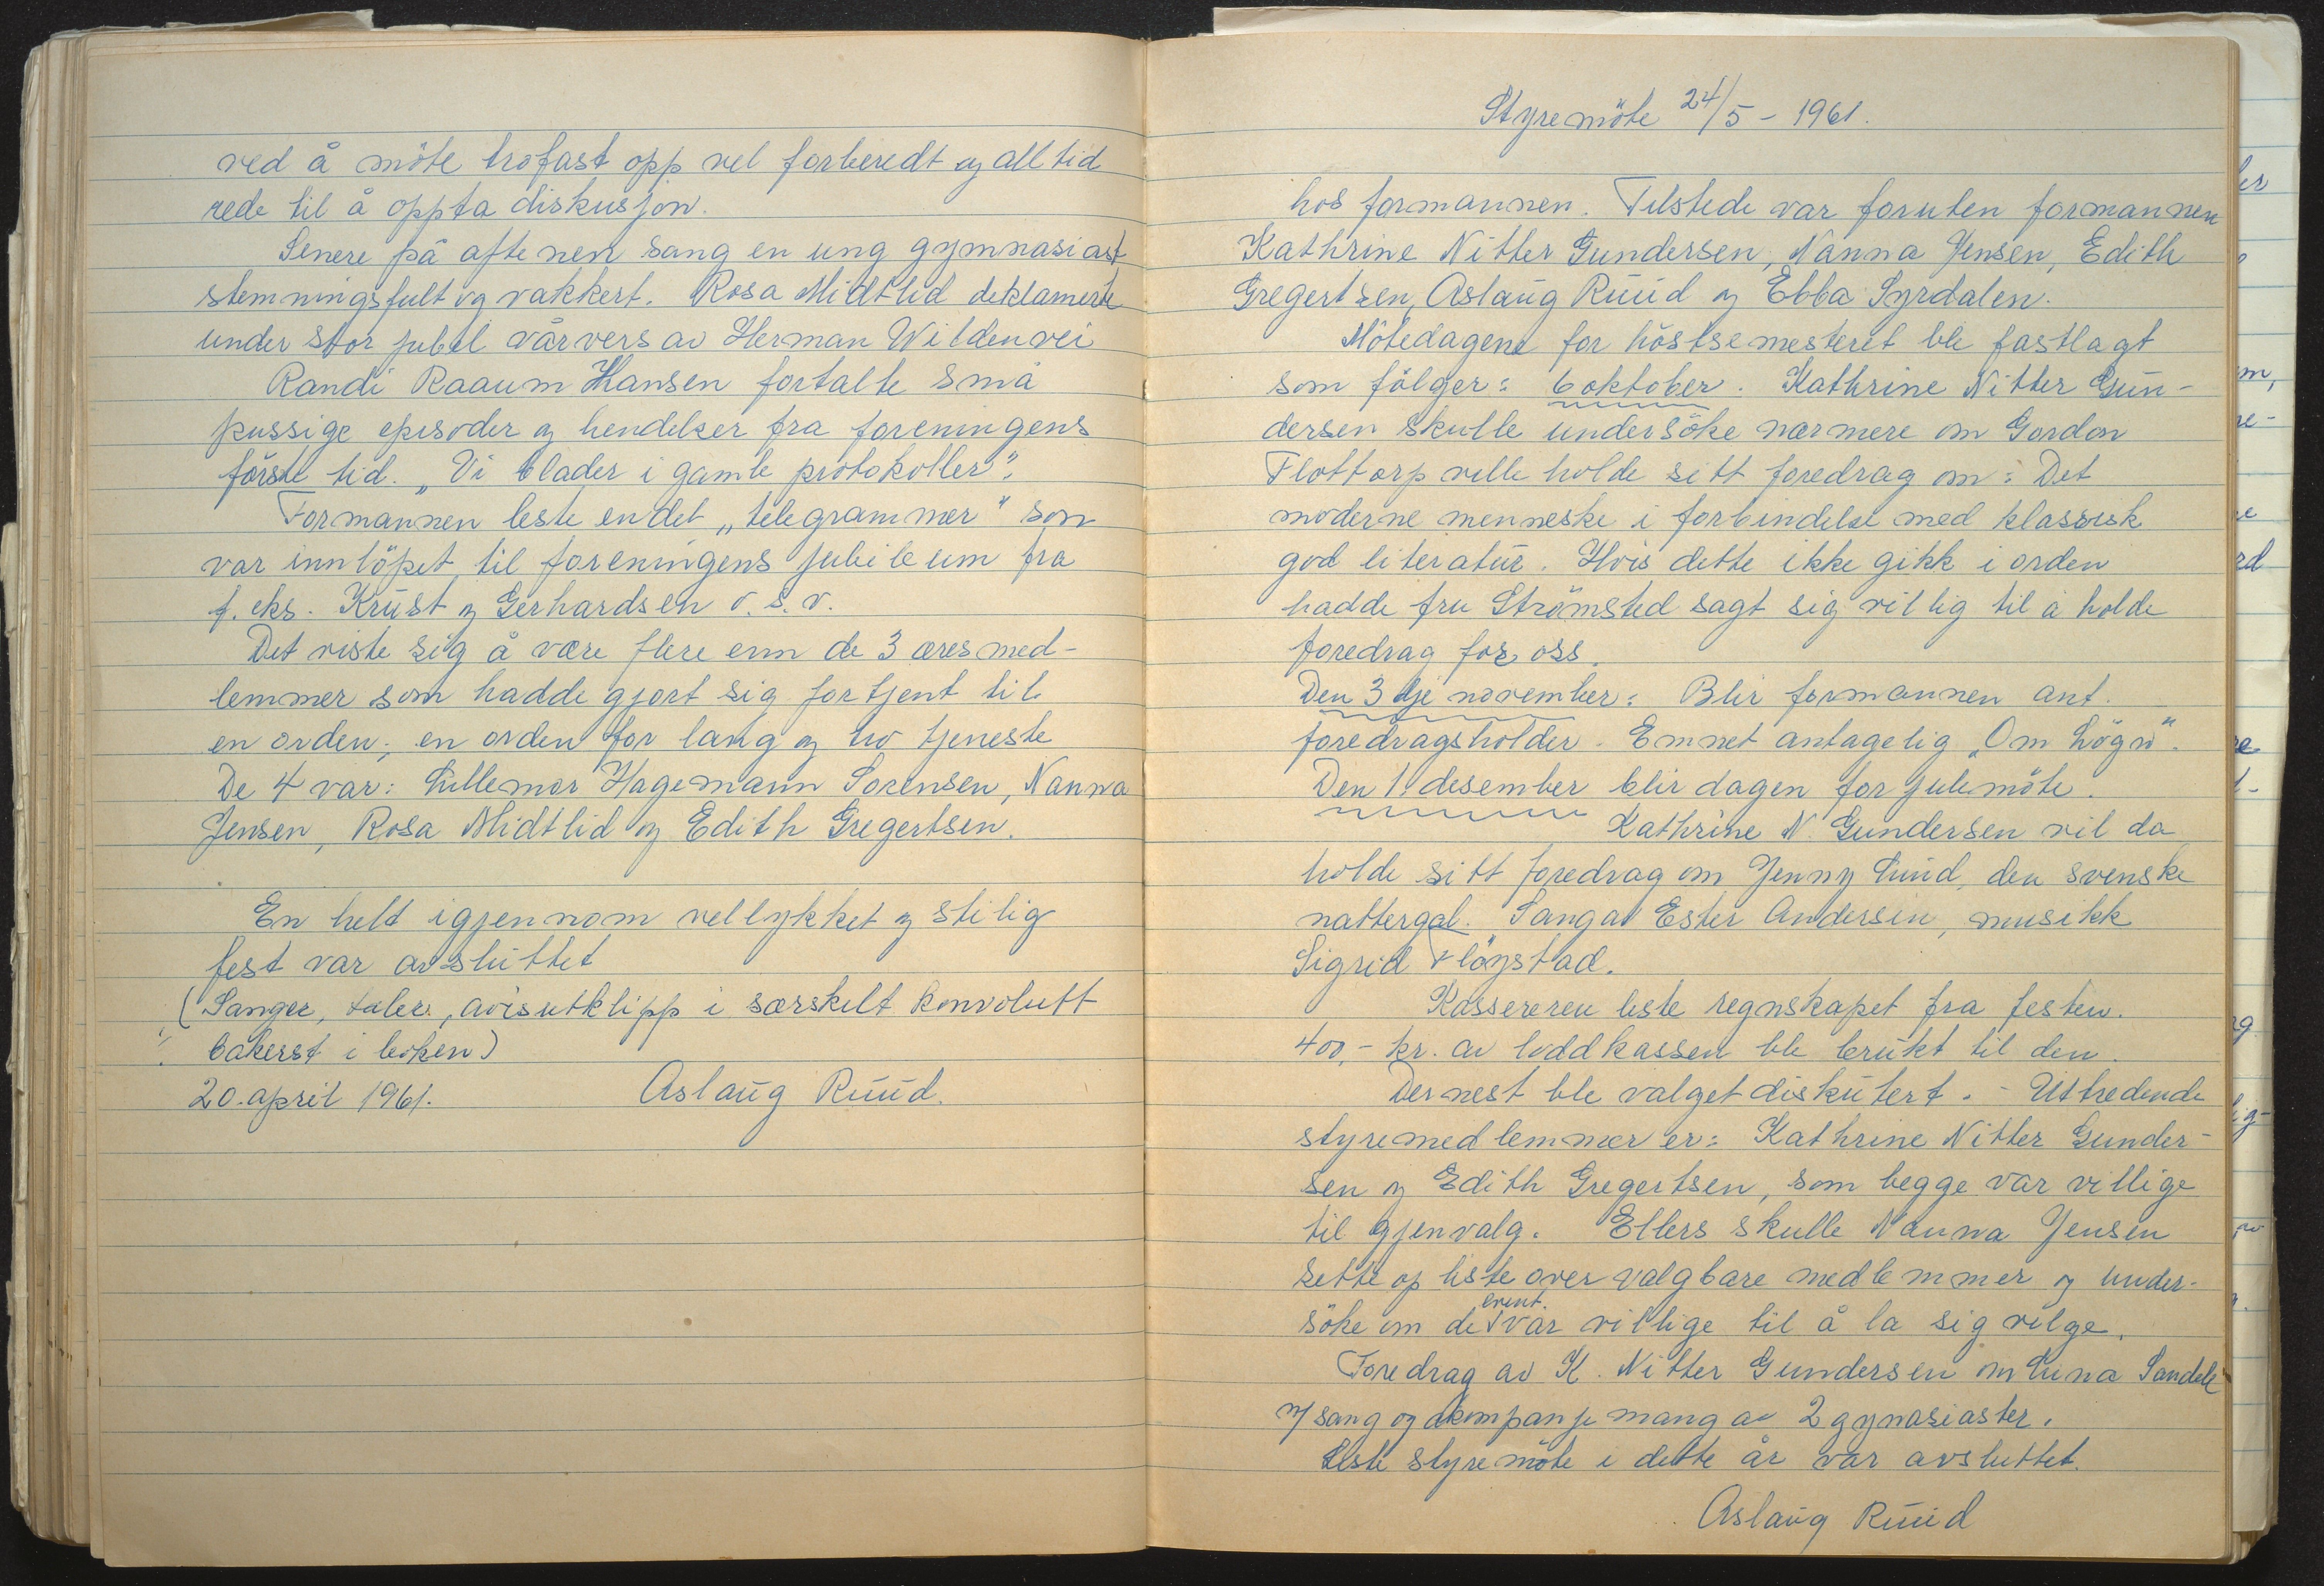 ved å möte trofast opp vel forberedt og alltid
rede til å oppta diskusjon.
Senere på aftenen sang en ung gymnasiast
stemningsfult og vakkert. Rosa Midtlid deklamerte
under stor jubel vårvers av Herman Wildenvei
Randi Raaum Hansen fortalte små
pussige episoder og hendelser fra foreningens
förste tid. „Vi blader i gamle protokoller".
Formannen leste endel „telegrammer" som
var innlöpet til foreningens jubileum fra
f. eks. Krust og Gerhardsen o.s.v.
Det viste sig å være flere enn de 3 æresmed-
lemmer som hadde gjort sig fortjent til
en orden; en orden for lang og tro tjeneste
De 4 var: Lillemor Hagemann Sorensen, Nanna
Jensen, Rosa Midtlid og Edith Gregertsen.
En helt igjennom vellykket og stilig
fest var avsluttet
(Sanger, taler, avisutklipp i særskilt konvolutt
bakerst i boken)
20. april 1961. Aslaug Ruud.
Styremöte 24/5 - 1961.
hos formannen. Tilstede var foruten formannen
Kathrine Nitter Gundersen, Nanna Jensen, Edith
Gregertsen, Aslaug Ruud og Ebba Syrdalen.
Mötedagene for höstsemesteret ble fastlagt
som fölger: 6 oktober. Kathrine Nitter Gun-
dersen skulle undersöke nærmere om Gordon
Flottorp ville holde sitt foredrag om: Det
moderne menneske i forbindelse med klassisk
god literatur. Hvis dette ikke gikk i orden
hadde fru Strömsted sagt sig villig til å holde
foredrag for oss.
Den 3dje november: Blir formannen ant.
foredragsholder. Emnet antagelig „Om Lögn".
Den 1. desember blir dagen for julemöte.
Kathrine N. Gundersen vil da
holde sitt foredrag om Jenny Lind, den svenske
nattergal. Sang av Ester Andersen, musikk
Sigrid Flöystad.
Kassereren leste regnskapet fra festen.
400,- kr. av loddkassen ble brukt til den.
Dernest ble valget diskutert. - Uttredende
styremedlemmer er: Kathrine Nitter Gunder-
sen og Edith Gregertsen, som begge var villige
til gjenvalg. Ellers skulle Nanna Jensen
sette op liste over valgbare medlemmer og under-
söke om de event. var villige til å la sig velge.
Foredrag av K. Nitter Gundersen om Lina Sandell
m/ sang og akompanjemang av 2 gynasiaster.
Siste styremöte i dette år var avsluttet.
Aslaug Ruud